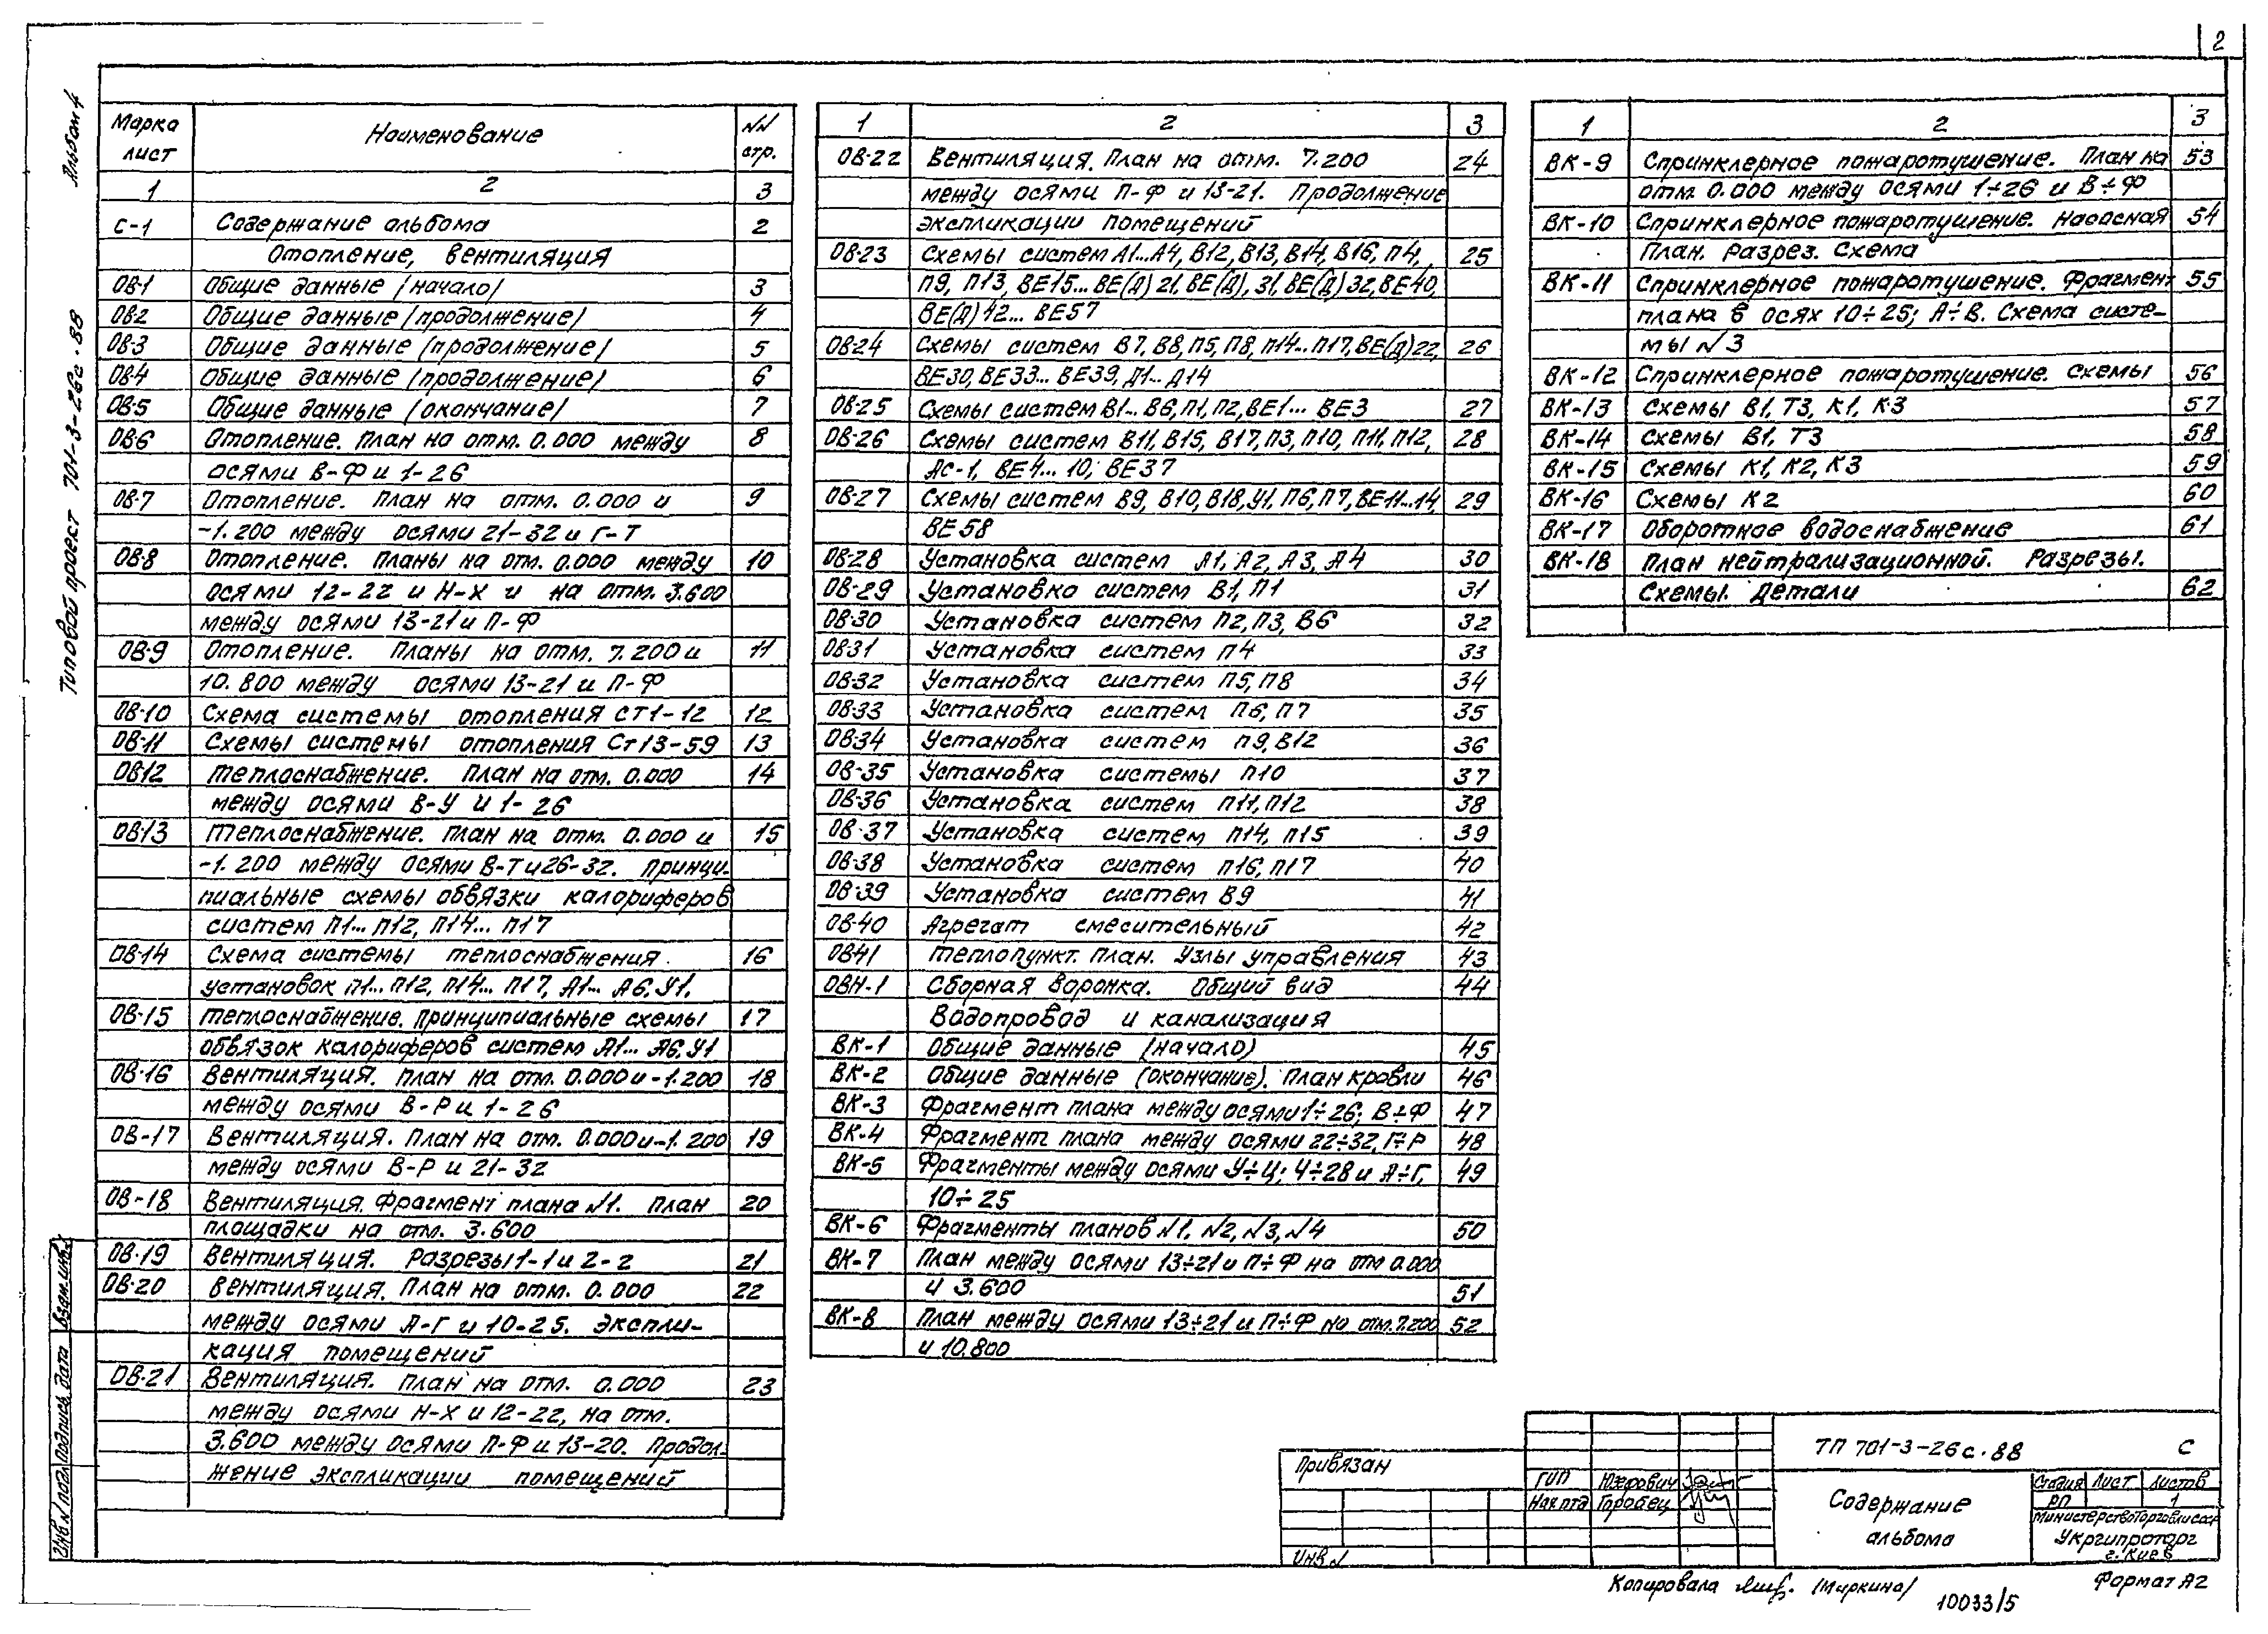 2
Альбом 4
Типовой проект 701-3-26с.88
Марка лист Наименование NN стр.
1 2 3
С-1 Содержание альбома 2
Отопление, вентиляция
ОВ-1 Общие данные (начало) 3
ОВ-2 Общие данные (продолжение) 4
ОВ-3 Общие данные (продолжение) 5
ОВ-4 Общие данные (продолжение) 6
ОВ-5 Общие данные (окончание) 7
ОВ-6 Отопление. План на отм. 0.000 между 8
осями В-Ф и 1-26
ОВ-7 Отопление. План на отм. 0.000 и 9
-1.200 между осями 21-32 и Г-Т
ОВ-8 Отопление. Планы на отм. 0.000 между 10
осями 12-22 и Н-Х и на отм. 3.600
между осями 13-21 и П-Ф
ОВ-9 Отопление. Планы на отм. 7.200 и 11
10.800 между осями 13-21 и П-Ф
ОВ-10 Схема системы отопления Ст1-12 12
ОВ-11 Схемы системы отопления Ст13-59 13
ОВ-12 Теплоснабжение. План на отм. 0.000 14
между осями В-У и 1-26
ОВ-13 Теплоснабжение. План на отм. 0.000 и 15
-1.200 между осями В-Т и 26-32. Принци-
пиальные схемы обвязки калориферов
систем П1...П12, П14...П17
ОВ-14 Схема системы теплоснабжения 16
установок П1...П12, П14...П17, А1...А6, У1.
ОВ-15 Теплоснабжение. Принципиальные схемы 17
обвязок калориферов систем А1...А6, У1
ОВ-16 Вентиляция. План на отм. 0.000 и -1.200 18
между осями В-Р и 1-26
ОВ-17 Вентиляция. План на отм. 0.000 и -1.200 19
между осями В-Р и 21-32
ОВ-18 Вентиляция. Фрагмент плана N1. План 20
площадки на отм. 3.600
ОВ-19 Вентиляция. Разрезы 1-1 и 2-2 21
ОВ-20 Вентиляция. План на отм. 0.000 22
между осями А-Г и 10-25. Экспли-
кация помещений
ОВ-21 Вентиляция. План на отм. 0.000 23
между осями Н-Х и 12-22, на отм.
3.600 между осями П-Ф и 13-20. Продол-
жение экспликации помещений
1 2 3
ОВ-22 Вентиляция. План на отм. 7.200 24
между осями П-Ф и 13-21. Продолжение
экспликации помещений
ОВ-23 Схемы систем А1...А4, В12, В13, В14, В16, П4, 25
П9, П13, ВЕ15...ВЕ(Д)21, ВЕ(Д), 31, ВЕ(Д)32, ВЕ40,
ВЕ(Д)42...ВЕ57
ОВ-24 Схемы систем В7, В8, П5, П8, П14...П17, ВЕ(Д)22, 26
ВЕ30, ВЕ33...ВЕ39, Д1...Д14
ОВ-25 Схемы систем В1...В6, П1, П2, ВЕ1...ВЕ3 27
ОВ-26 Схемы систем В11, В15, В17, П3, П10, П11, П12, 28
АС-1, ВЕ4...10; ВЕ37
ОВ-27 Схемы систем В9, В10, В18, У1, П6, П7, ВЕ11...14, 29
ВЕ58
ОВ-28 Установка систем А1, А2, А3, А4 30
ОВ-29 Установка систем В1, П1 31
ОВ-30 Установка систем П2, П3, В6 32
ОВ-31 Установка систем П4 33
ОВ-32 Установка систем П5, П8 34
ОВ-33 Установка систем П6, П7 35
ОВ-34 Установка систем П9, В12 36
ОВ-35 Установка системы П10 37
ОВ-36 Установка систем П11, П12 38
ОВ-37 Установка систем П14, П15 39
ОВ-38 Установка систем П16, П17 40
ОВ-39 Установка систем В9 41
ОВ-40 Агрегат смесительный 42
ОВ-41 Теплопункт. План. Узлы управления 43
ОВН-1 Сборная воронка. Общий вид 44
Водопровод и канализация
ВК-1 Общие данные (начало) 45
ВК-2 Общие данные (окончание). План кровли 46
ВК-3 Фрагмент плана между осями 1÷26; В÷Ф 47
ВК-4 Фрагмент плана между осями 22÷32, Г÷Р 48
ВК-5 Фрагменты между осями У÷Ц; 4÷28 и А÷Г, 49
10÷25
ВК-6 Фрагменты планов N1, N2, N3, N4 50
ВК-7 План между осями 13÷21 и П÷Ф на отм 0.000
и 3.600 51
ВК-8 План между осями 13÷21 и П÷Ф на отм. 7.200 52
и 10.800
1 2 3
ВК-9 Спринклерное пожаротушение. План на 53
отм. 0.000 между осями 1÷26 и В÷Ф
ВК-10 Спринклерное пожаротушение. Насосная 54
План. Разрез. Схема
ВК-11 Спринклерное пожаротушение. Фрагмент 55
плана в осях 10÷25; А÷В. Схема систе-
мы N3
ВК-12 Спринклерное пожаротушение. Схемы 56
ВК-13 Схемы В1, Т3, К1, К3 57
ВК-14 Схемы В1, Т3 58
ВК-15 Схемы К1, К2, К3 59
ВК-16 Схемы К2 60
ВК-17 Оборотное водоснабжение 61
ВК-18 План нейтрализационной. Разрезы.
Схемы. Детали 62
Инв. N подл. Подпись, дата Взам. инв. N
Привязан
Инв N
ГИП Юхрович
Нач отд Горобец
ТП 701-3-26с.88 С
Содержание
альбома
Стадия Лист Листов
РП 1
Министерство торговли СССР
Укргипроторг
г. Киев
Копировала (Миркина)
Формат А2
10033/5